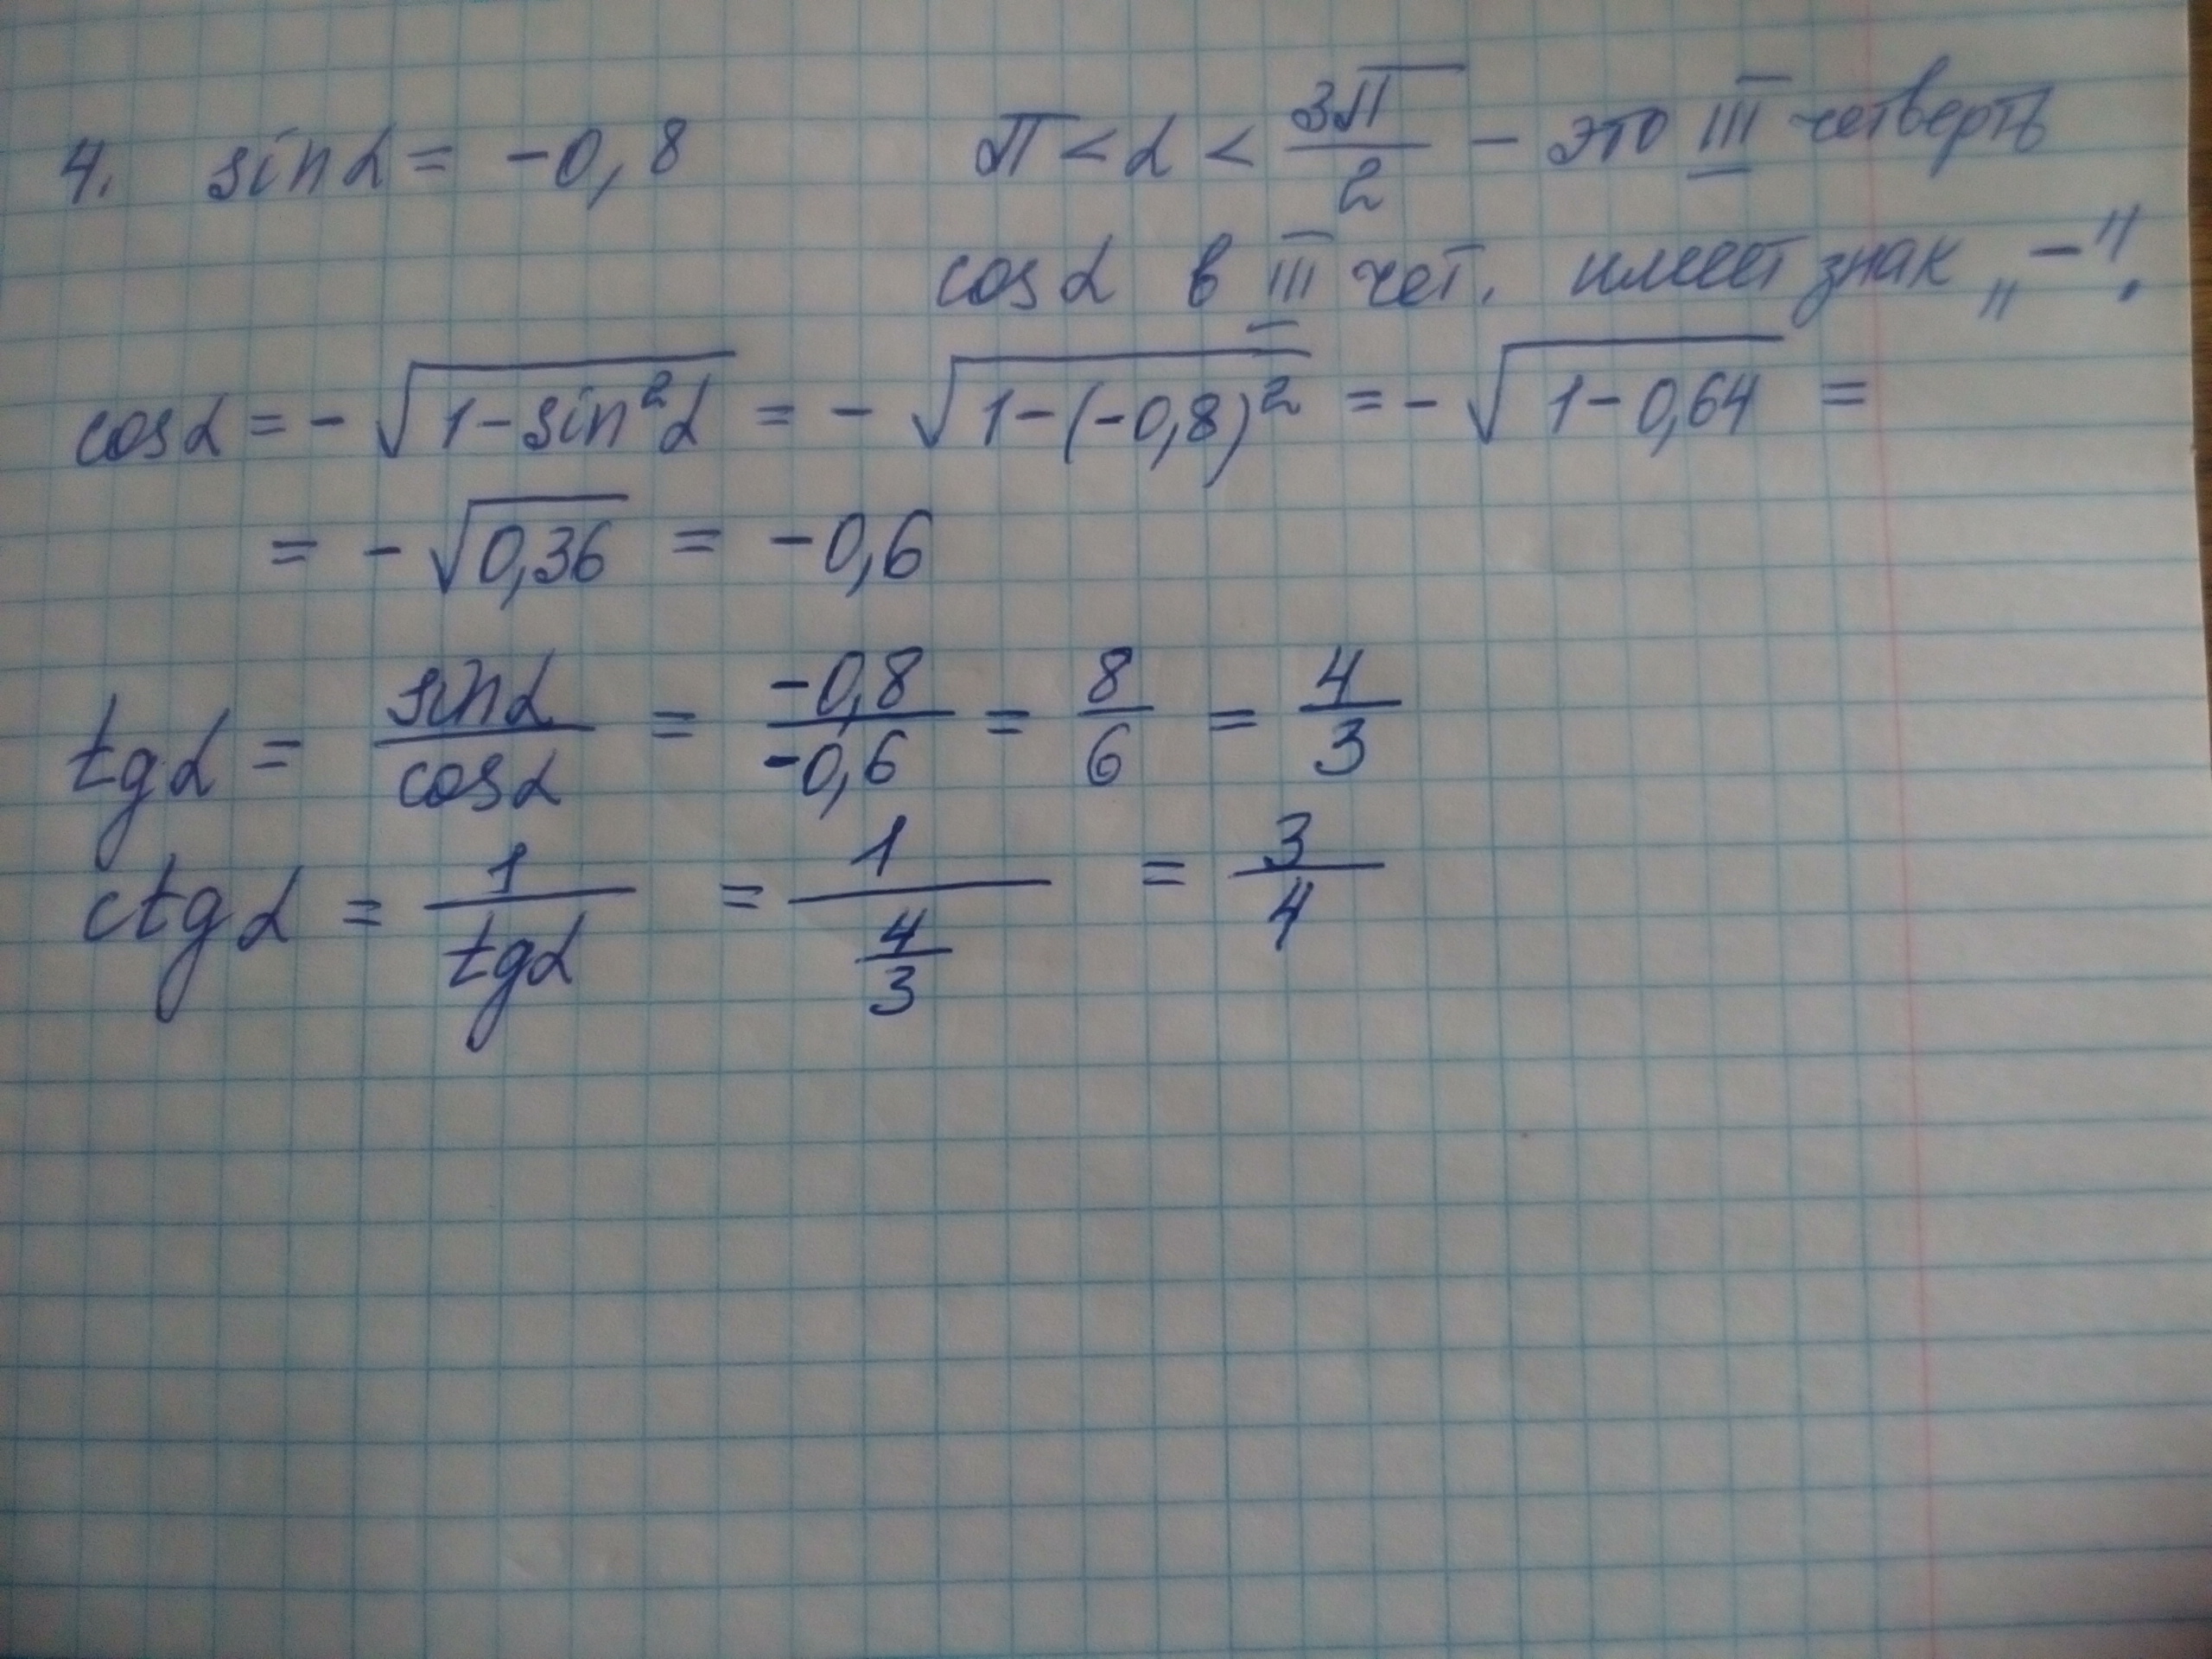 4. sin α = -0,8     π < α < 3π/2 - это III четверть
cos α в III чет. имеет знак „-".
cos α = - √(1 - sin²α) = - √(1-(-0,8)²) = - √(1-0,64) =
= - √0,36 = -0,6
tg α = sin α/cos α = -0,8/-0,6 = 8/6 = 4/3
ctg α = 1/tg α = 1/(4/3) = 3/4